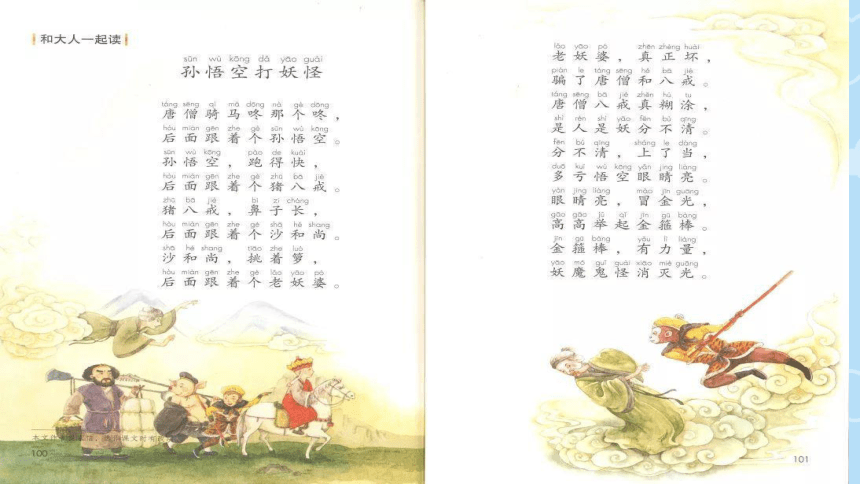 和大人一起读
sūn wù kōng dǎ yāo guài
孙悟空打妖怪
táng sēng qí mǎ dōng nà gè dōng
唐僧骑马咚那个咚，
hòu miàn gēn zhe gè sūn wù kōng
后面跟着个孙悟空。
sūn wù kōng pǎo de kuài
孙悟空，跑得快，
hòu miàn gēn zhe gè zhū bā jiè
后面跟着个猪八戒。
zhū bā jiè bí zi cháng
猪八戒，鼻子长，
hòu miàn gēn zhe gè shā hé shang
后面跟着个沙和尚。
shā hé shang tiāo zhe luó
沙和尚，挑着箩，
hòu miàn gēn zhe gè lǎo yāo pó
后面跟着个老妖婆。
100
lǎo yāo pó zhēn zhèng huài
老妖婆，真正坏，
piàn le táng sēng hé bā jiè
骗了唐僧和八戒。
táng sēng bā jiè zhēn hú tu
唐僧八戒真糊涂，
shì rén shì yāo fēn bù qīng
是人是妖分不清。
fēn bù qīng shàng le dàng
分不清，上了当，
duō kuī wù kōng yǎn jing liàng
多亏悟空眼睛亮。
yǎn jing liàng mào jīn guāng
眼睛亮，冒金光，
gāo gāo jǔ qǐ jīn gū bàng
高高举起金箍棒。
jīn gū bàng yǒu lì liàng
金箍棒，有力量，
yāo mó guǐ guài xiāo miè guāng
妖魔鬼怪消灭光。
101